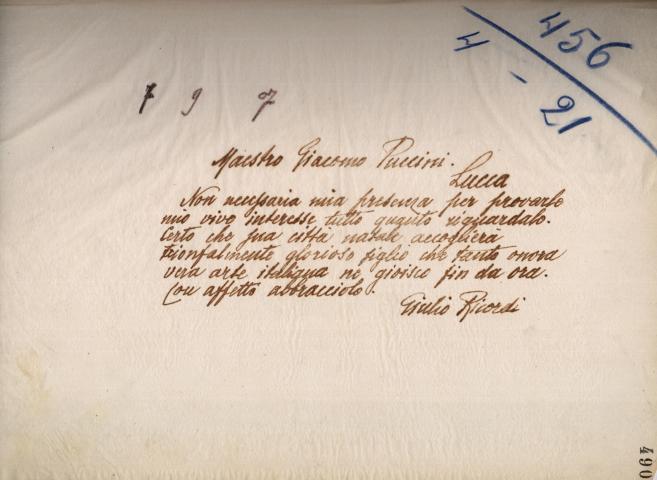 456
4 - 21
7 9 07
Maestro Giacomo Puccini.
Lucca
Non necessaria mia presenza per provarle
mio vivo interesse tutto quanto riguardalo.
Certo che sua città natale accoglierà
trionfalmente glorioso figlio che tanto onora
vera arte italiana ne gioisco fin da ora.
Con affetto abbracciolo.
Giulio Ricordi
490